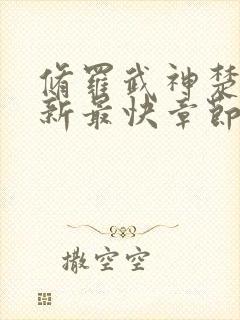 脩羅武神楚
新最快章節
撒空空